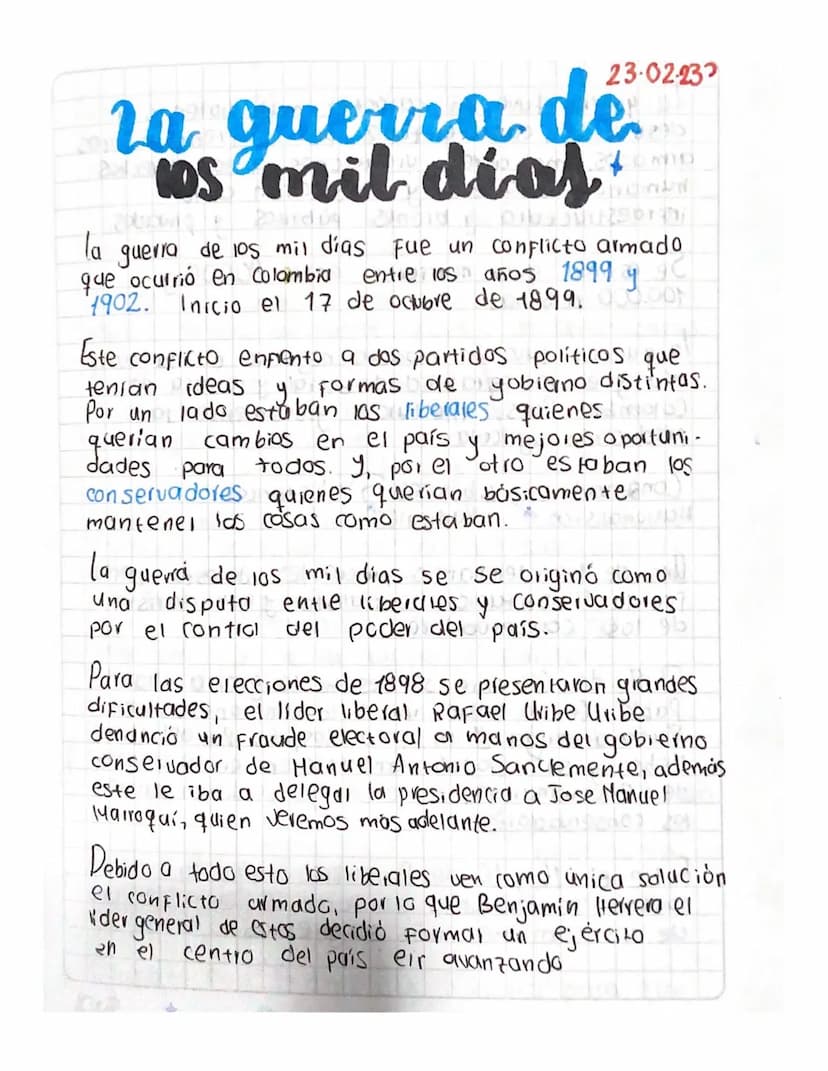 23.02.23
La guerra de
los mil días
la guerra de los mil días fue un conflicto armado
que ocurrió en Colombia entre los años 1899 y
1902. Inicio el 17 de octubre de 1899.
Este conflicto enfrento a dos partidos políticos que
tenían ideas y formas de gobierno distintas.
Por un lado estaban los liberales quienes
querían cambios en el país y mejores oportuni-
dades para todos. Y, por el otro estaban los
conservadores quienes querían básicamente
mantener las cosas como estaban.
La guerra de los mil días se se originó como
una disputa entre liberales y conservadores
por el control del poder del país.
Para las elecciones de 1898 se presentaron grandes
dificultades, el líder liberal Rafael Uribe Uribe
denunció un fraude electoral a manos del gobierno
conservador de Manuel Antonio Sanclemente, además
este le iba a delegar la presidencia a Jose Manuel
Marroquí, quien veremos más adelante.
Debido a todo esto los liberales ven como única solución
el conflicto armado, por lo que Benjamín Herrera el
líder general de estos decidió formar un ejército
en el centro del país e ir avanzando